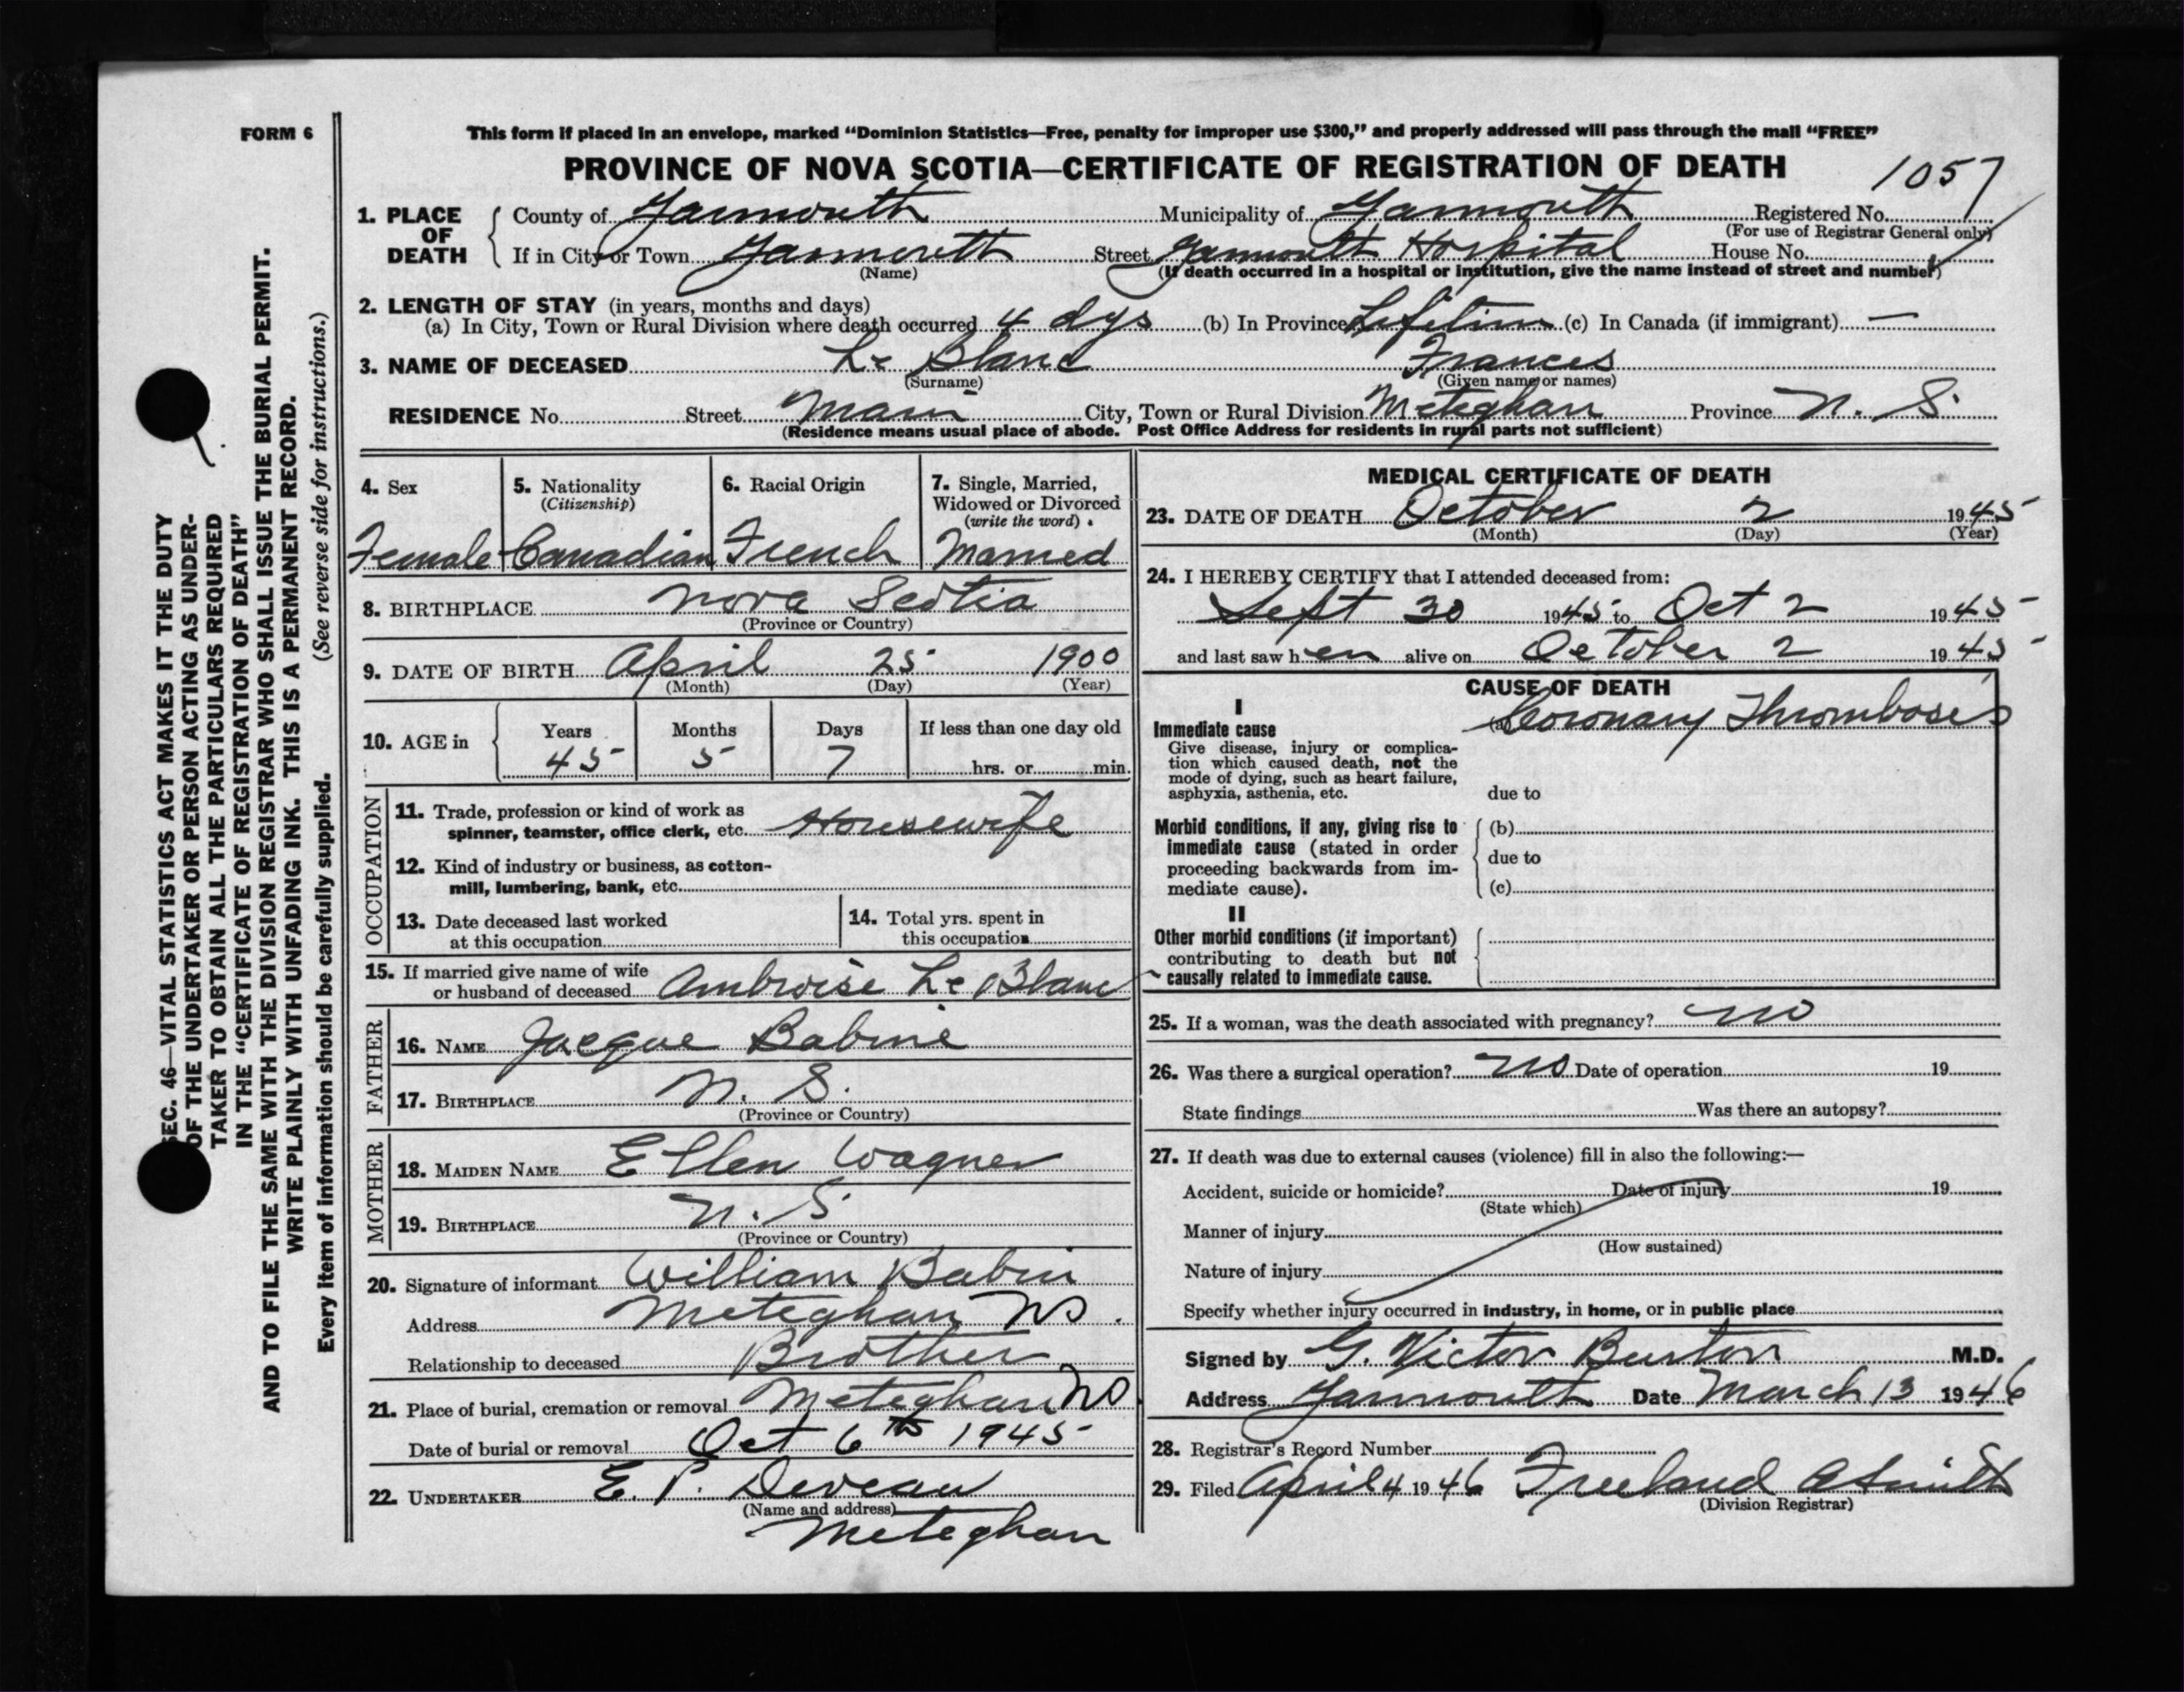 FORM 6
This form if placed in an envelope, marked “Dominion Statistics—Free, penalty for improper use $300,” and properly addressed will pass through the mail “FREE”
PROVINCE OF NOVA SCOTIA—CERTIFICATE OF REGISTRATION OF DEATH
1057
1. PLACE OF DEATH
County of Yarmouth Municipality of Yarmouth Registered No.
(For use of Registrar General only)
If in City or Town Yarmouth Street Yarmouth Hospital House No.
(Name) (If death occurred in a hospital or institution, give the name instead of street and number)
2. LENGTH OF STAY (in years, months and days)
(a) In City, Town or Rural Division where death occurred 4 dys (b) In Province Lifetime (c) In Canada (if immigrant) —
3. NAME OF DECEASED Le Blanc Frances
(Surname) (Given name or names)
RESIDENCE No. Street Main City, Town or Rural Division Meteghan Province N. S.
(Residence means usual place of abode. Post Office Address for residents in rural parts not sufficient)
4. Sex
Female
5. Nationality
(Citizenship)
Canadian
6. Racial Origin
French
7. Single, Married,
Widowed or Divorced
(write the word)
Married
8. BIRTHPLACE Nova Scotia
(Province or Country)
9. DATE OF BIRTH April 25 1900
(Month) (Day) (Year)
10. AGE in
Years Months Days If less than one day old
45 5 7 hrs. or min.
OCCUPATION
11. Trade, profession or kind of work as
spinner, teamster, office clerk, etc. Housewife
12. Kind of industry or business, as cotton-
mill, lumbering, bank, etc.
13. Date deceased last worked
at this occupation
14. Total yrs. spent in
this occupation
15. If married give name of wife
or husband of deceased Ambroise Le Blanc
FATHER
16. NAME Jacque Babine
17. BIRTHPLACE N. S.
(Province or Country)
MOTHER
18. MAIDEN NAME Ellen Wagner
19. BIRTHPLACE N. S.
(Province or Country)
20. Signature of informant William Babin
Address Meteghan NS.
Relationship to deceased Brother
21. Place of burial, cremation or removal Meteghan NS
Date of burial or removal Oct 6th 1945
22. UNDERTAKER E. P. Deveau
(Name and address)
Meteghan
MEDICAL CERTIFICATE OF DEATH
23. DATE OF DEATH October 2 1945
(Month) (Day) (Year)
24. I HEREBY CERTIFY that I attended deceased from:
Sept 30 1945 to Oct 2 1945
and last saw her alive on October 2 1945
CAUSE OF DEATH
I
Immediate cause
Give disease, injury or complica-
tion which caused death, not the
mode of dying, such as heart failure,
asphyxia, asthenia, etc.
(a) Coronary Thrombosis
due to
Morbid conditions, if any, giving rise to
immediate cause (stated in order
proceeding backwards from im-
mediate cause).
(b)
due to
(c)
II
Other morbid conditions (if important)
contributing to death but not
causally related to immediate cause.
25. If a woman, was the death associated with pregnancy? no
26. Was there a surgical operation? no Date of operation 19
State findings Was there an autopsy?
27. If death was due to external causes (violence) fill in also the following:—
Accident, suicide or homicide? Date of injury 19
(State which)
Manner of injury
(How sustained)
Nature of injury
Specify whether injury occurred in industry, in home, or in public place
Signed by G. Victor Burton M.D.
Address Yarmouth Date March 13 1946
28. Registrar's Record Number
29. Filed April 4 1946 Freeland A Smith
(Division Registrar)
SEC. 46—VITAL STATISTICS ACT MAKES IT THE DUTY
OF THE UNDERTAKER OR PERSON ACTING AS UNDER-
TAKER TO OBTAIN ALL THE PARTICULARS REQUIRED
IN THE “CERTIFICATE OF REGISTRATION OF DEATH”
AND TO FILE THE SAME WITH THE DIVISION REGISTRAR WHO SHALL ISSUE THE BURIAL PERMIT.
WRITE PLAINLY WITH UNFADING INK. THIS IS A PERMANENT RECORD.
Every item of information should be carefully supplied. (See reverse side for instructions.)